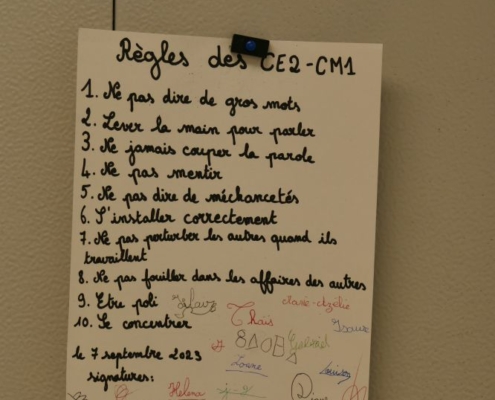 Règles des CE2-CM1
1. Ne pas dire de gros mots
2. Lever la main pour parler
3. Ne jamais couper la parole
4. Ne pas mentir
5. Ne pas dire de méchancetés
6. S'installer correctement
7. Ne pas perturber les autres quand ils
travaillent
8. Ne pas fouiller dans les affaires des autres
9. Etre poli
10. Se concentrer
Thaïs
le 7 septembre 2023
signatures:
Helena